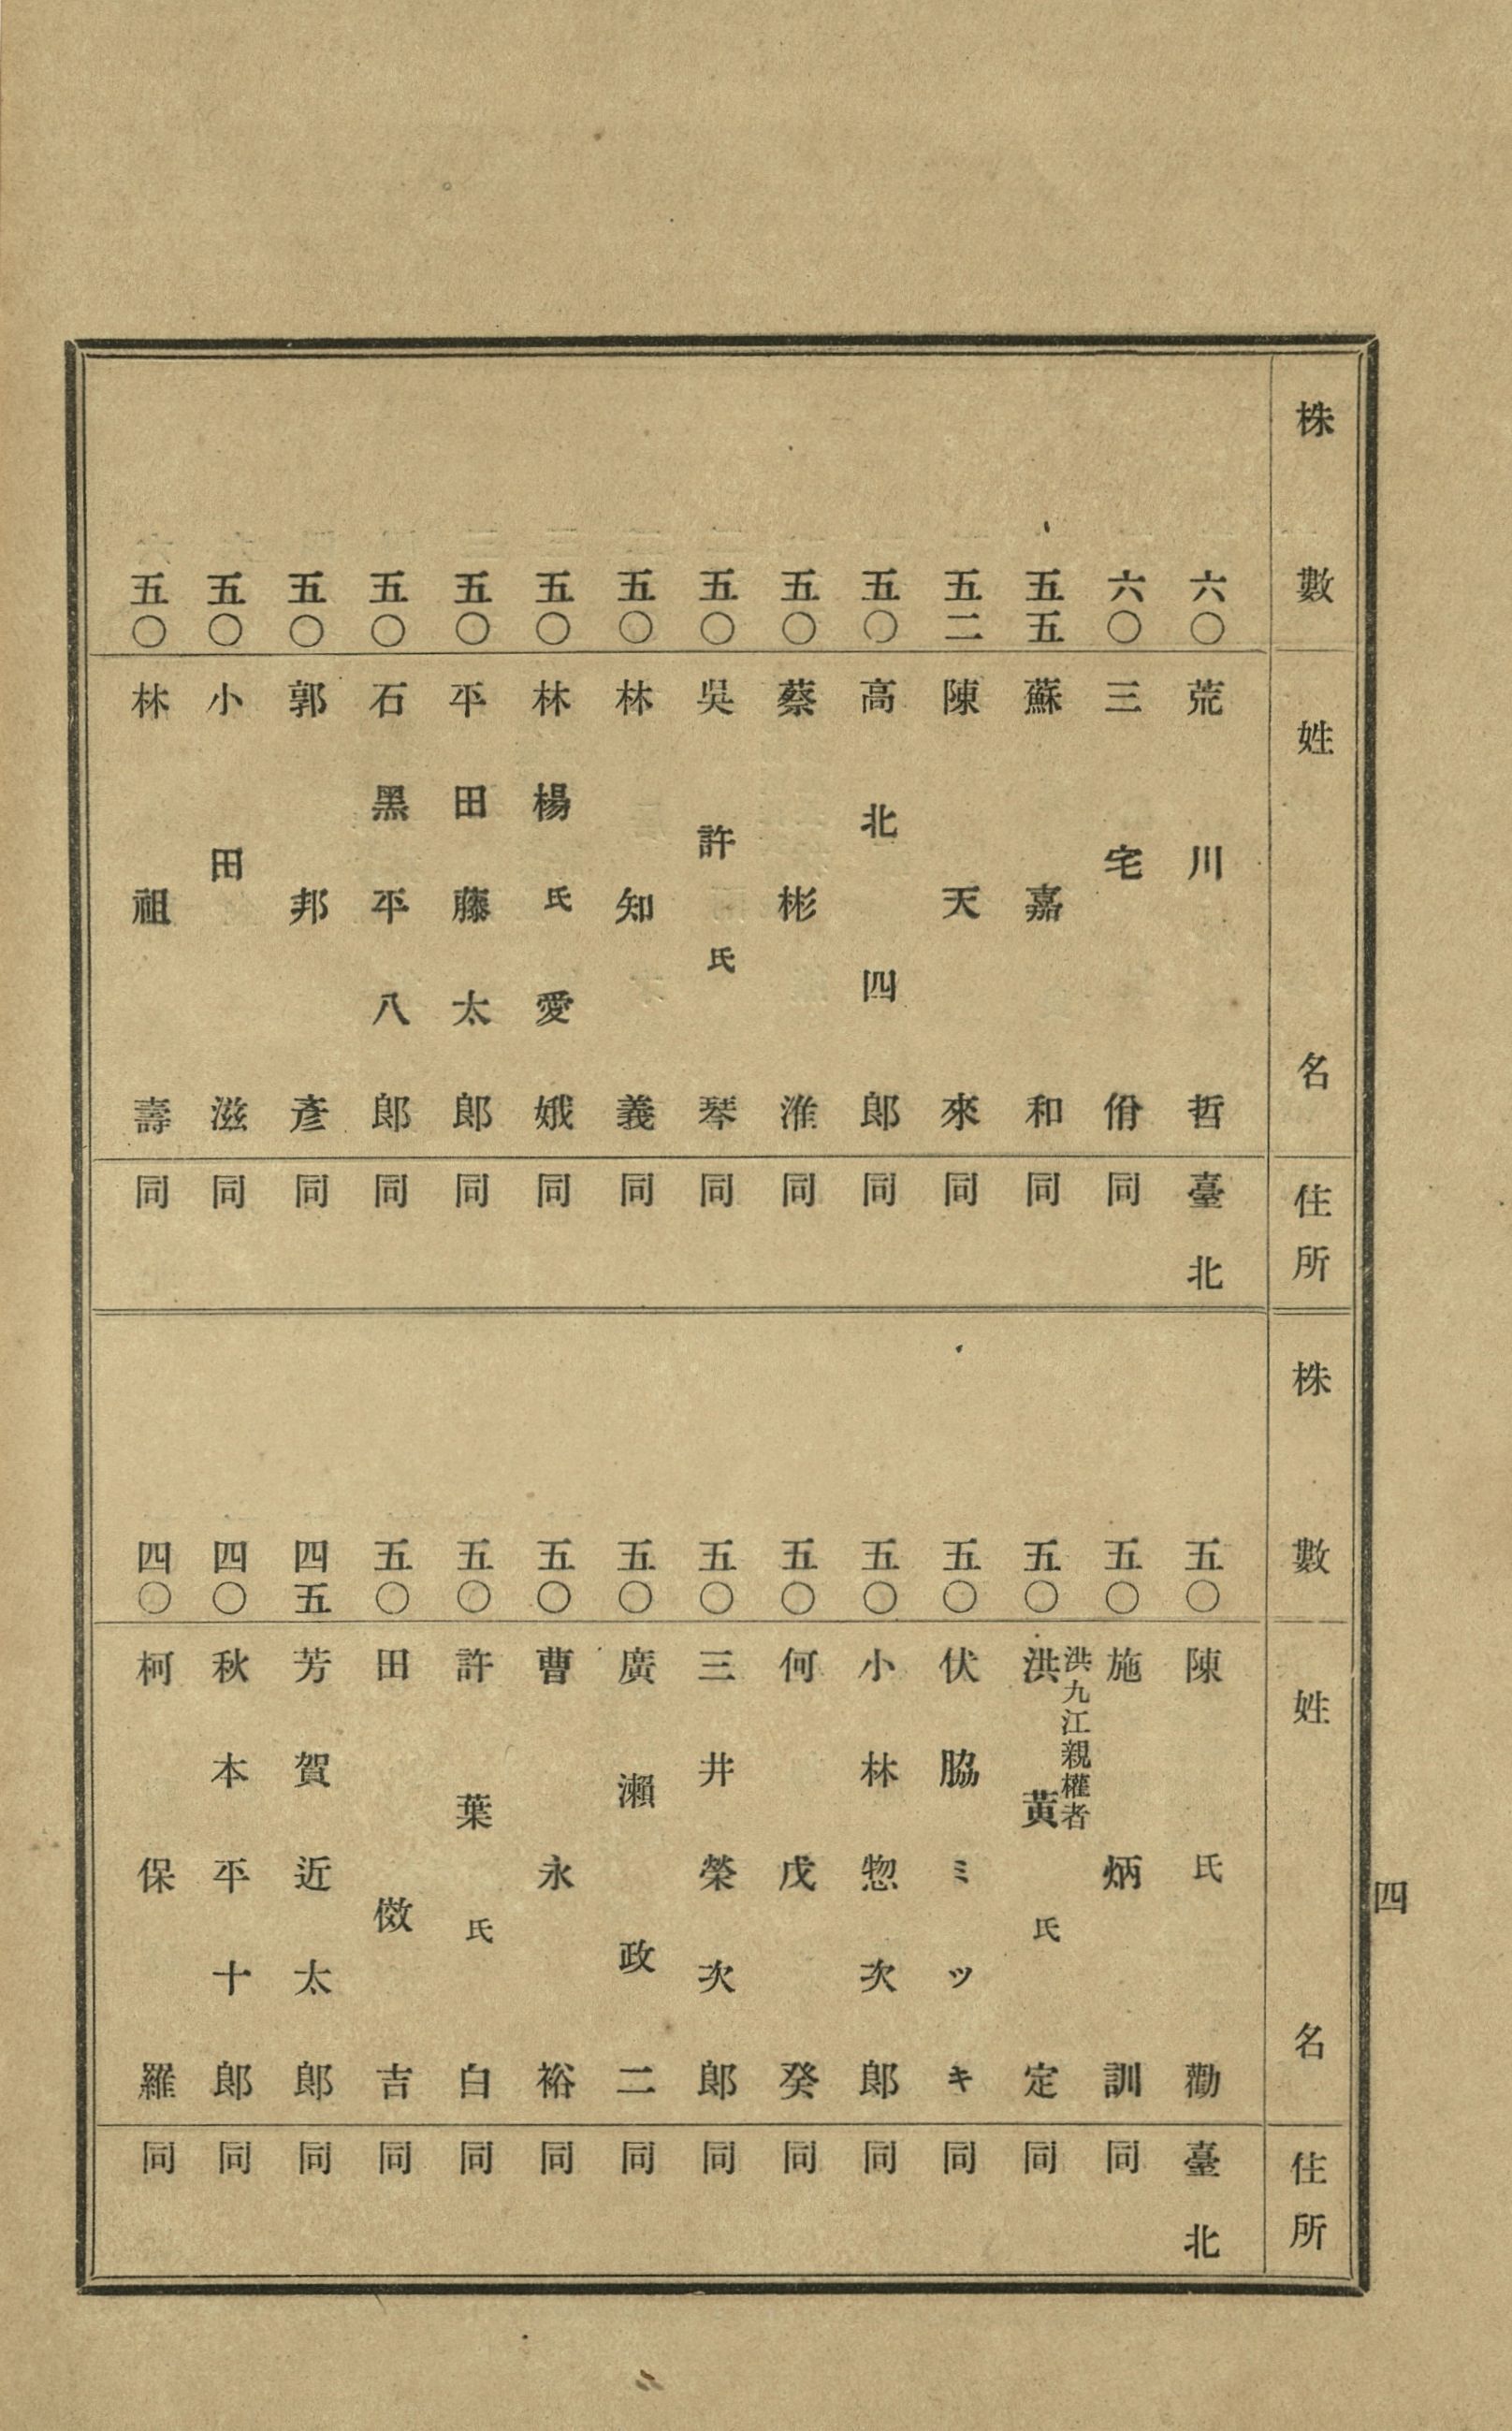 株數 姓名 住所
六〇 荒川哲 臺北
六〇 三宅佾 同
五五 蘇嘉和 同
五二 陳天來 同
五〇 高北四郎 同
五〇 蔡彬淮 同
五〇 吳許氏琴 同
五〇 林知義 同
五〇 林楊氏愛娥 同
五〇 平田藤太郎 同
五〇 石黑平八郎 同
五〇 郭邦彥 同
五〇 小田滋 同
五〇 林祖壽 同
株數 姓名 住所
五〇 陳氏勸 臺北
五〇 施炳訓 同
洪九江親權者
五〇 洪黃氏定 同
五〇 伏脇ミツキ 同
五〇 小林惣次郎 同
五〇 何戊癸 同
五〇 三井榮次郎 同
五〇 廣瀨政二 同
五〇 曹永裕 同
五〇 許葉氏白 同
五〇 田儌吉 同
四五 芳賀近太郎 同
四〇 秋本平十郎 同
四〇 柯保羅 同
四